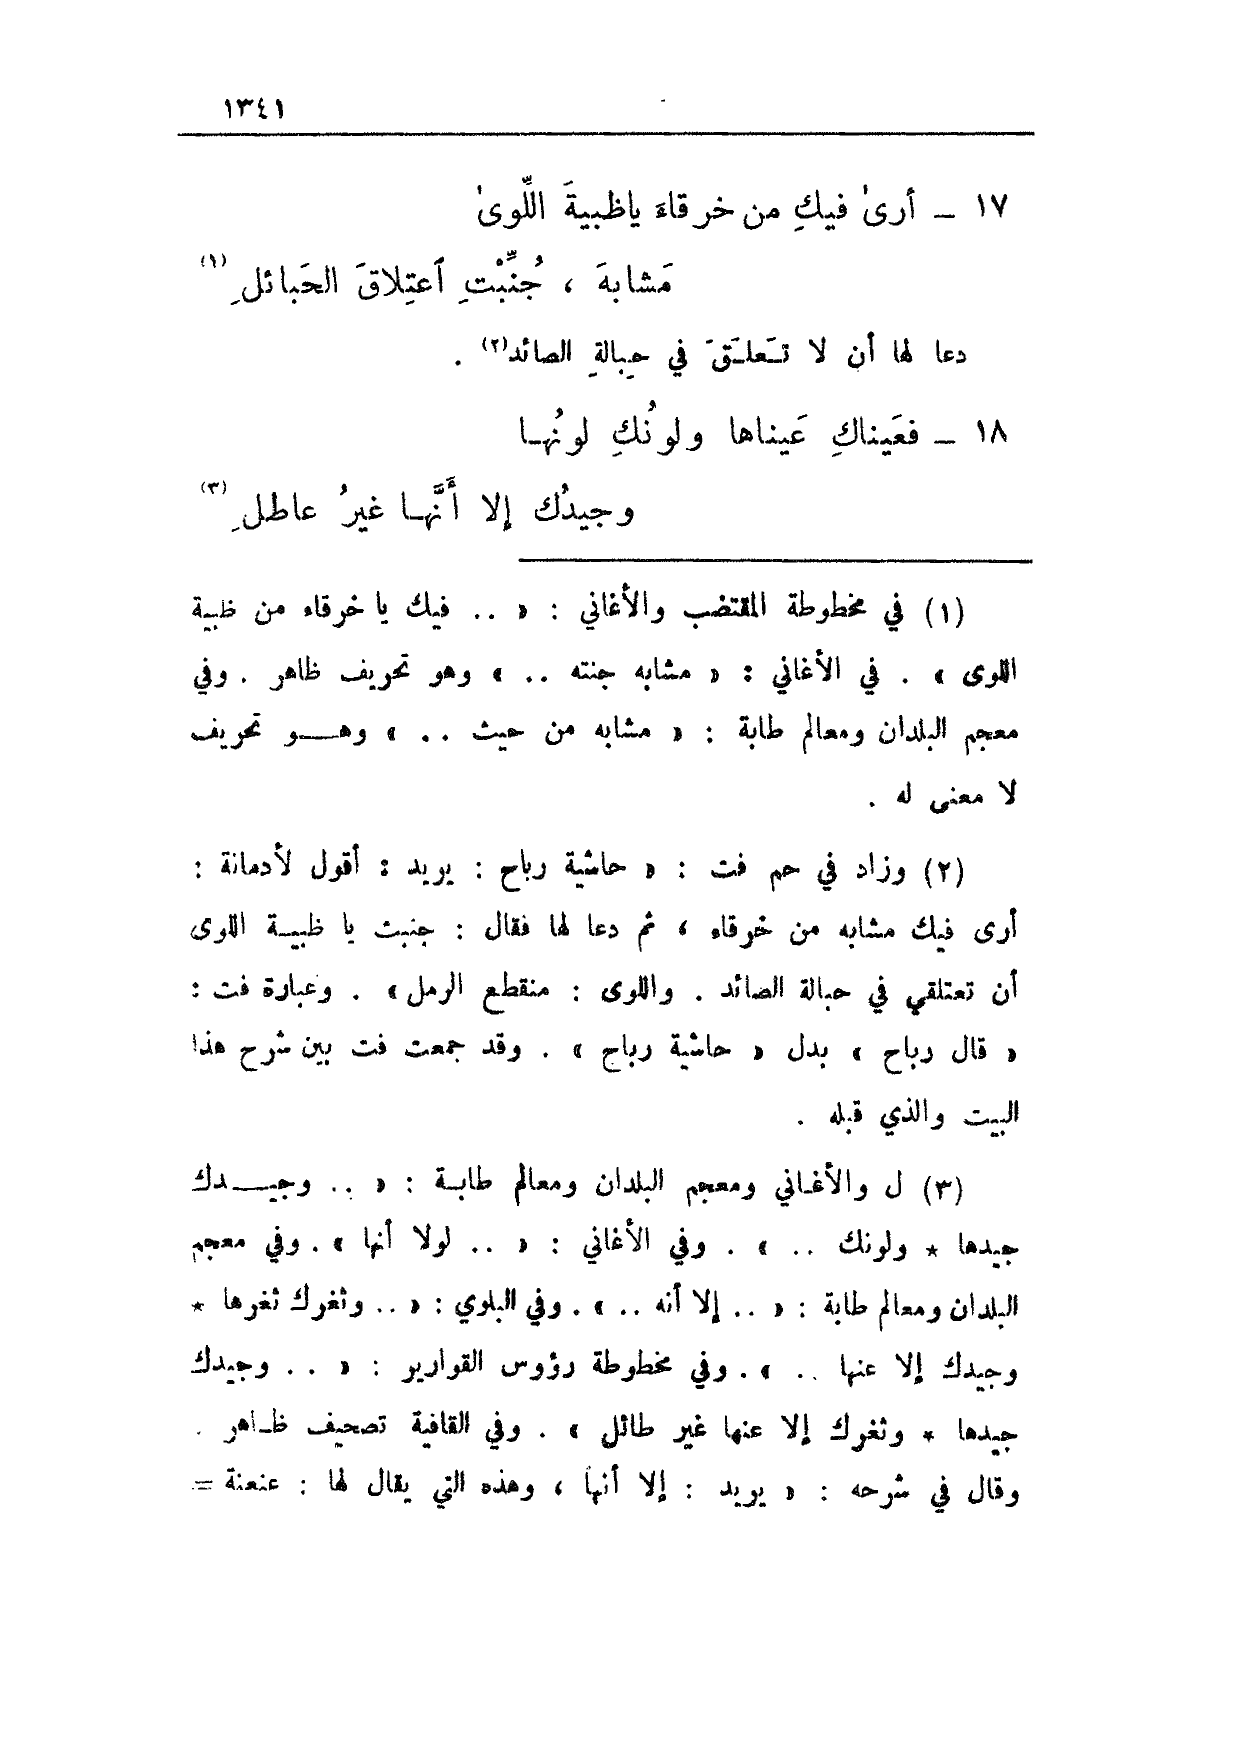 ١٣٤١
١٧ ـ أرىٰ فيكِ من خرقاءَ ياظبيةَ اللِّوىٰ
مَشابهَ ، جُنِّبْتِ ٱعتِلاقَ الحَبائلِ (١)
دعا لها أن لا تَعلَقَ في حِبالةِ الصائد(٢) .
١٨ ـ فعَيناكِ عَيناها ولونُكِ لونُها
وجيدُك إلا أَنَّها غيرُ عاطلِ (٣)
(١) في مخطوطة المقتضب والأغاني : « .. فيك يا خرقاء من ظبية
اللوى » . في الأغاني : « مشابه جنته .. » وهو تحريف ظاهر . وفي
معجم البلدان ومعالم طابة : « مشابه من حيث .. » وهو تحريف
لا معنى له .
(٢) وزاد في حم فت : « حاشية رباح : يريد : أقول لأدمانة :
أرى فيك مشابه من خرقاء ، ثم دعا لها فقال : جنبت يا ظبية اللوى
أن تعتلقي في حبالة الصائد . واللوى : منقطع الرمل» . وعبارة فت :
« قال رباح » بدل « حاشية رباح » . وقد جمعت فت بين شرح هذا
البيت والذي قبله .
(٣) ل والأغاني ومعجم البلدان ومعالم طابة : « .. وجيدك
جيدها * ولونك .. » . وفي الأغاني : « .. لولا أنها » . وفي معجم
البلدان ومعالم طابة : « .. إلا أنه .. » . وفي البلوي : « .. وثغرك ثغرها *
وجيدك إلا عنها .. » . وفي مخطوطة رؤوس القوارير : « .. وجيدك
جيدها * وثغرك إلا عنها غير طائل » . وفي القافية تصحيف ظاهر .
وقال في شرحه : « يريد : إلا أنها ، وهذه التي يقال لها : عنعنة =